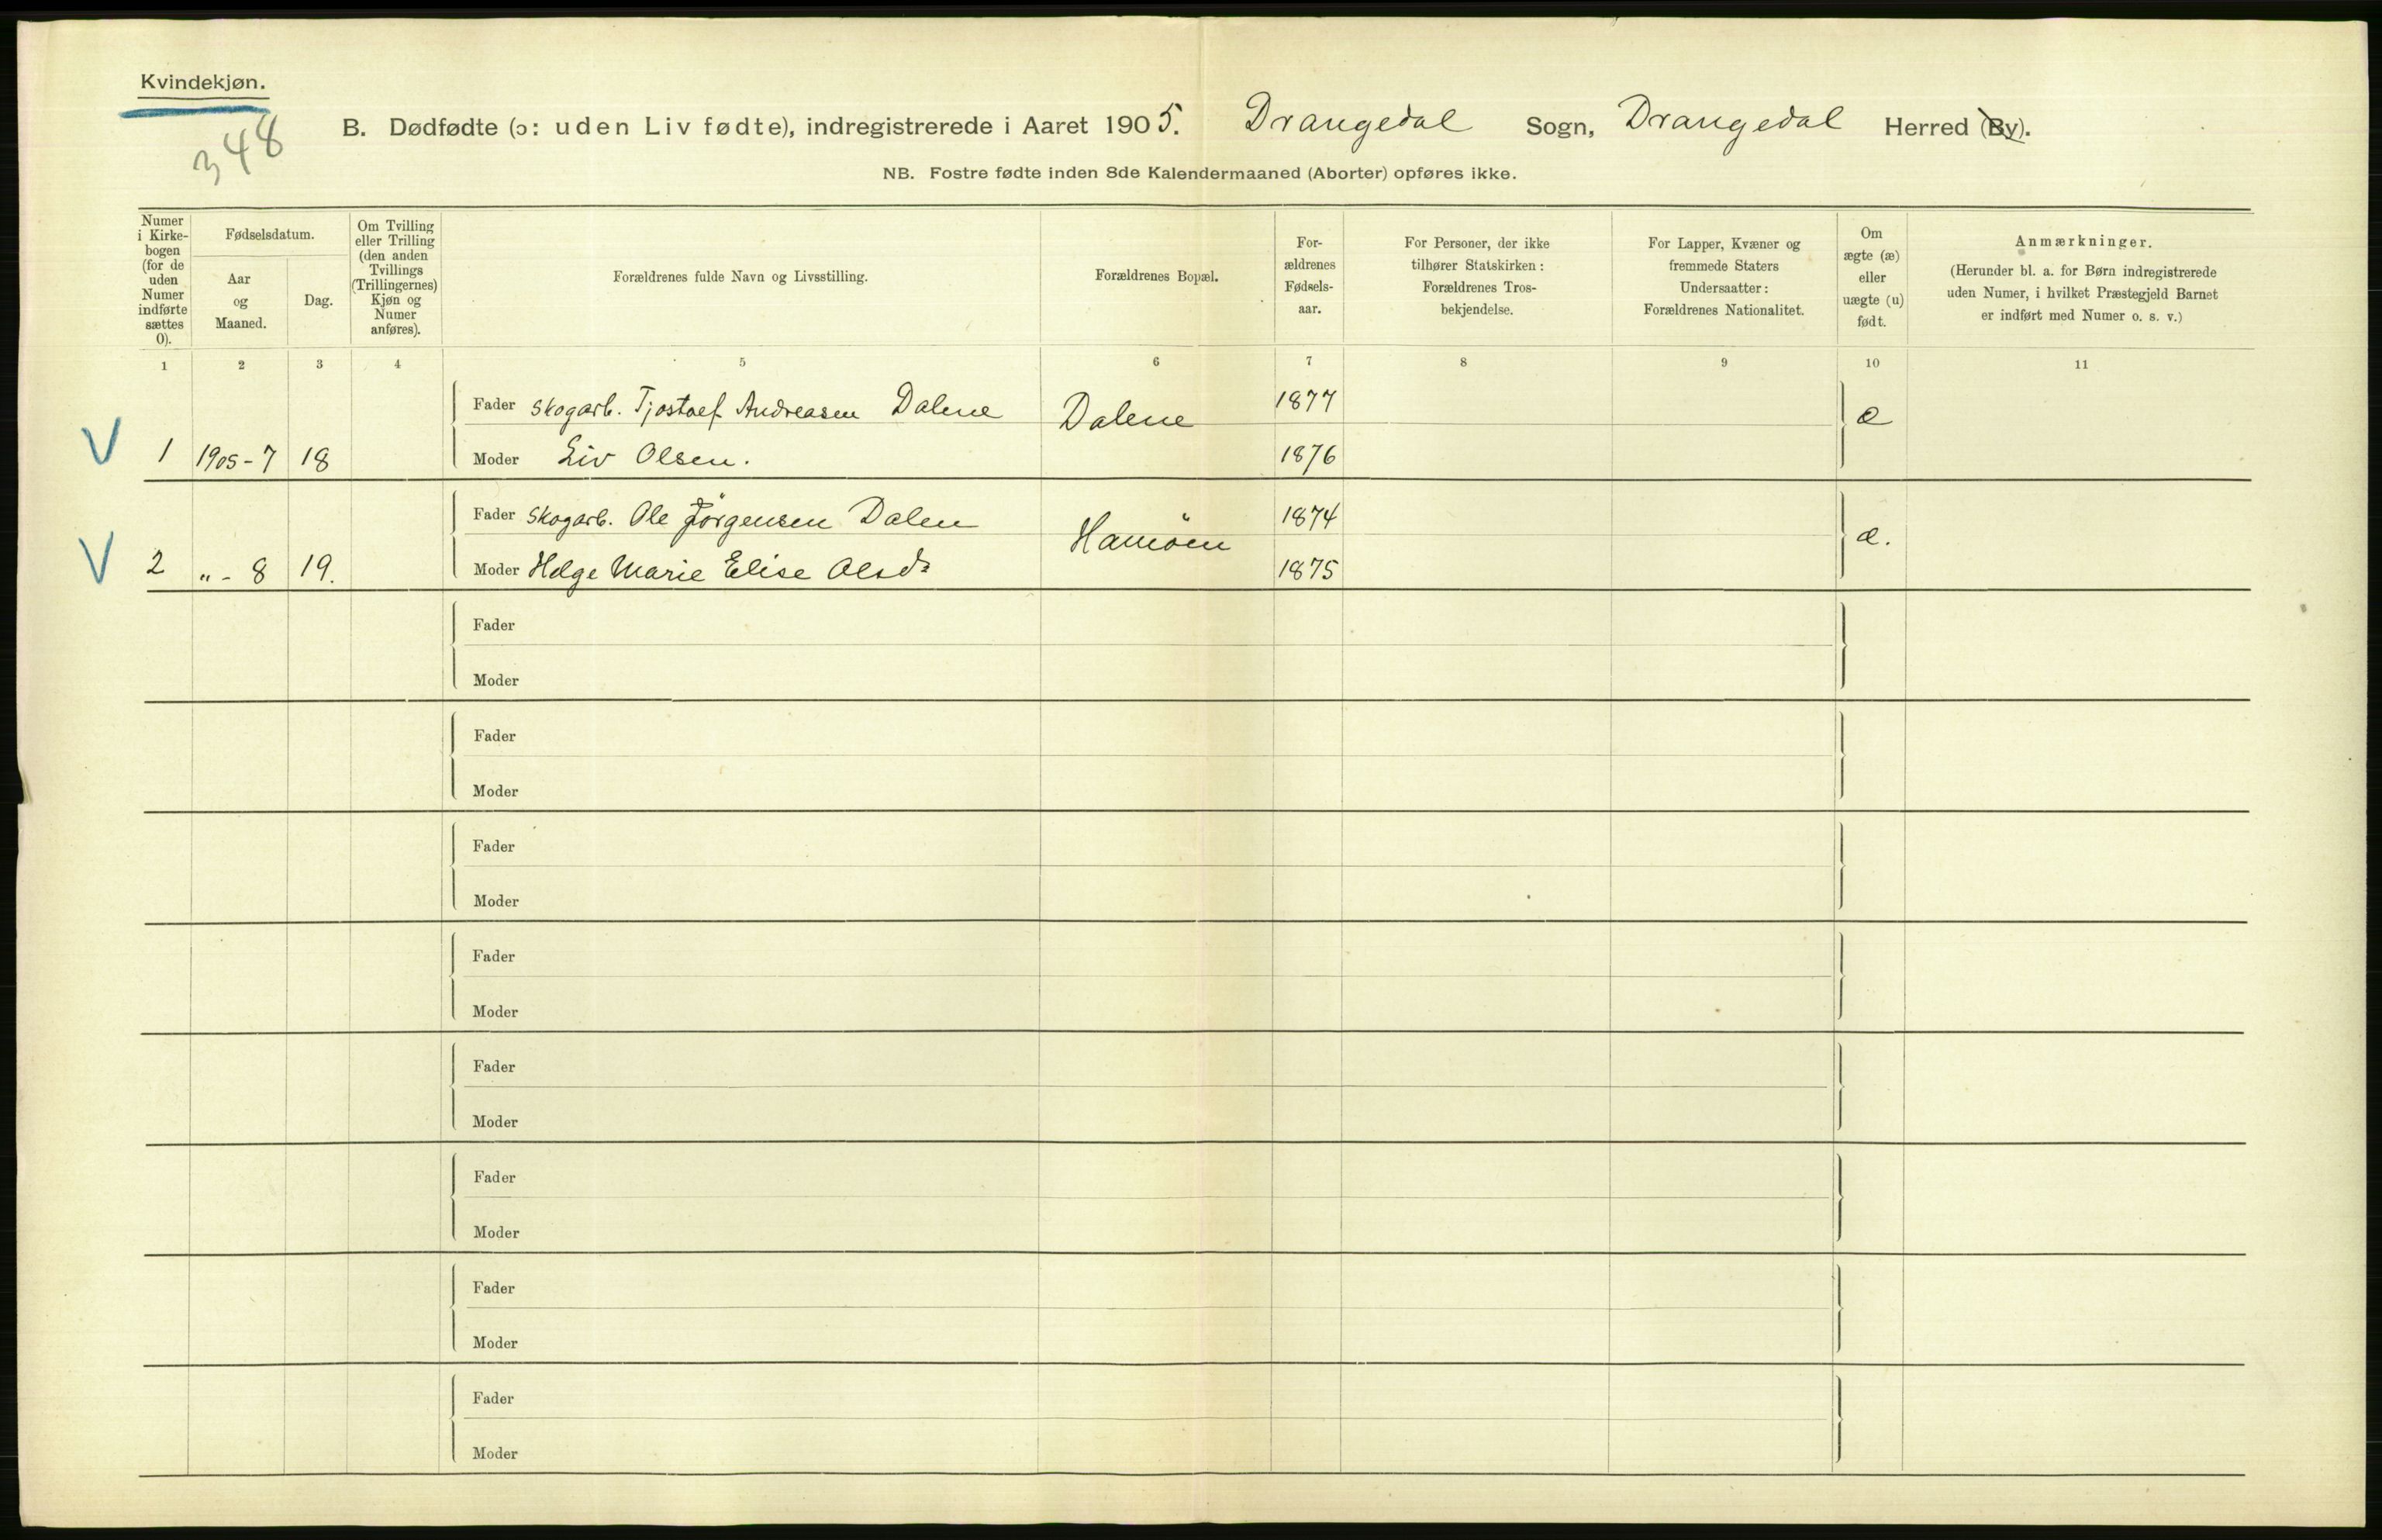 Kvindekjøn.
348
B. Dødfødte (ɔ: uden Liv fødte), indregistrerede i Aaret 1905. Drangedal Sogn, Drangedal Herred (By).
NB. Fostre fødte inden 8de Kalendermaaned (Aborter) opføres ikke.
Numer i Kirke-bogen (for de uden Numer indførte sættes 0).
Fødselsdatum.
Aar og Maaned.
Dag.
Om Tvilling eller Trilling (den anden Tvillings (Trillingernes) Kjøn og Numer anføres).
Forældrenes fulde Navn og Livsstilling.
Forældrenes Bopæl.
For-ældrenes Fødsels-aar.
For Personer, der ikke tilhører Statskirken: Forældrenes Tros-bekjendelse.
For Lapper, Kvæner og fremmede Staters Undersaatter: Forældrenes Nationalitet.
Om ægte (æ) eller uægte (u) født.
Anmærkninger.
(Herunder bl. a. for Børn indregistrerede uden Numer, i hvilket Præstegjeld Barnet er indført med Numer o. s. v.)
1 2 3 4 5 6 7 8 9 10 11
Fader Skogarb. Tjostolf Andreasen Dalene Dalene 1877 æ
V 1 1905-7 18 Moder Liv Olsen. 1876
Fader Skogarb. Ole Jörgensen Dalen 1874 æ.
V 2 „ - 8 19. Moder Helge Marie Elise Olsdr 1875
Fader
Moder
Fader
Moder
Fader
Moder
Fader
Moder
Fader
Moder
Fader
Moder
Fader
Moder
Fader
Moder